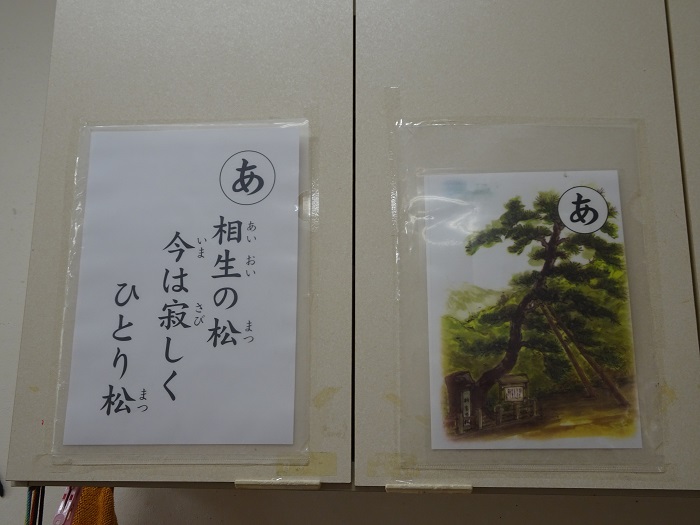 あ
相生の松
今は寂しく
ひとり松
あ